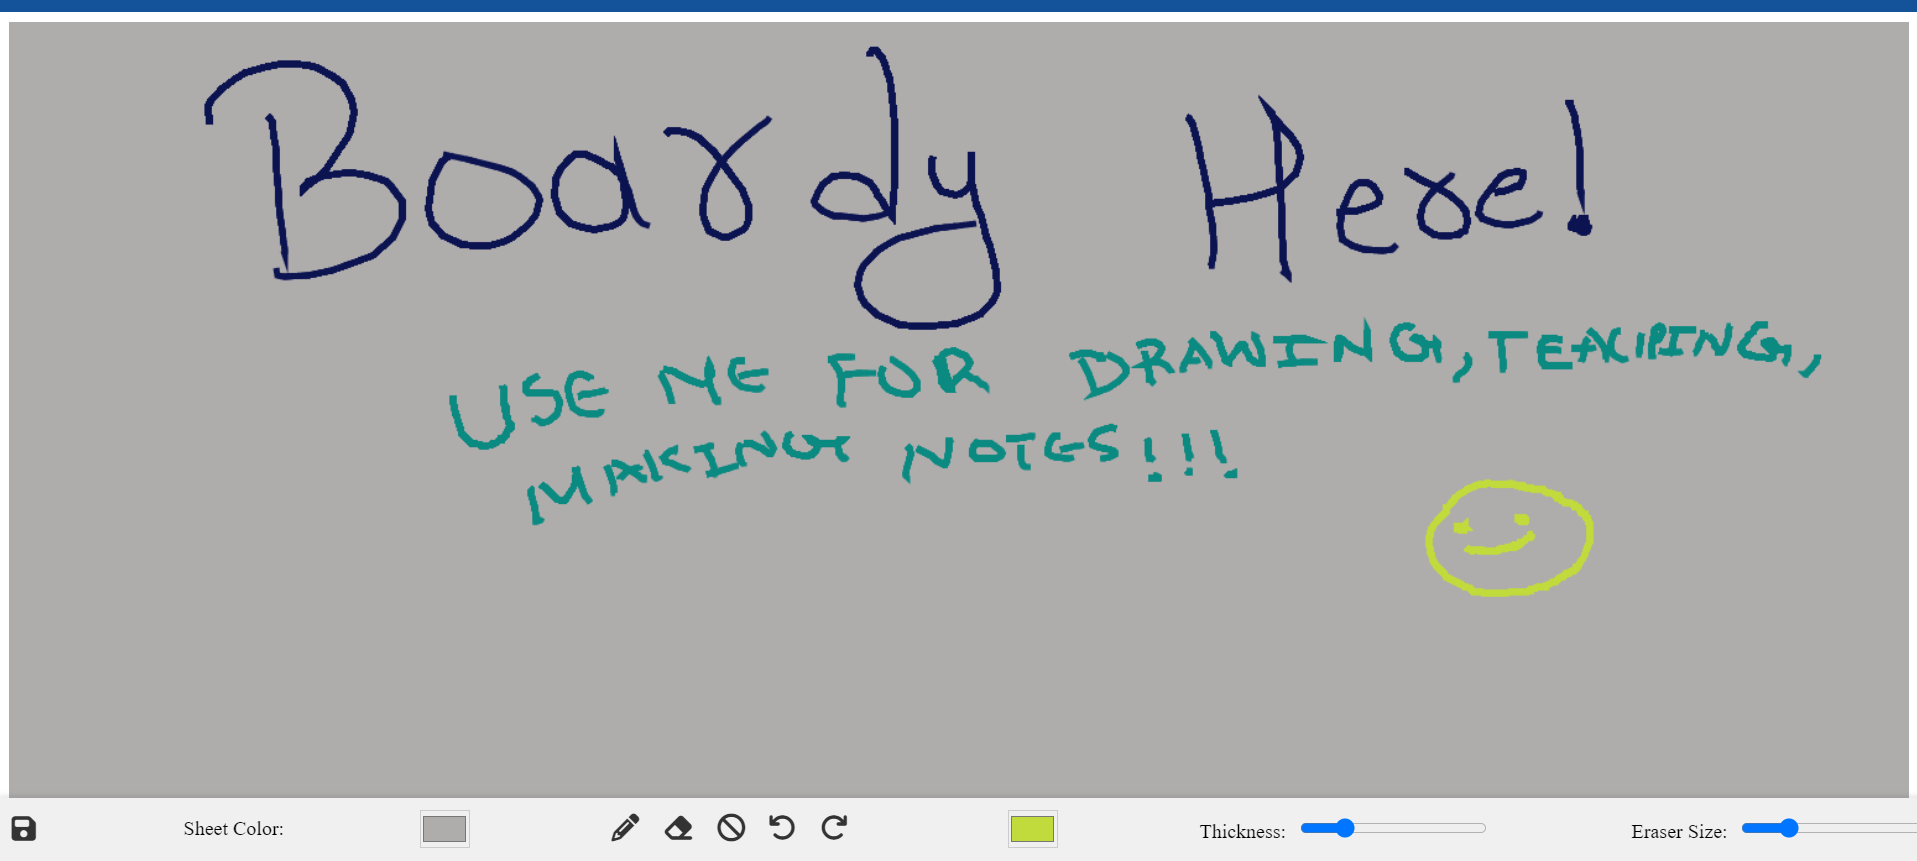 Boardy Here!
USE ME FOR DRAWING, TEACHING,
MAKING NOTES!!!
Sheet Color:
Thickness:
Eraser Size: